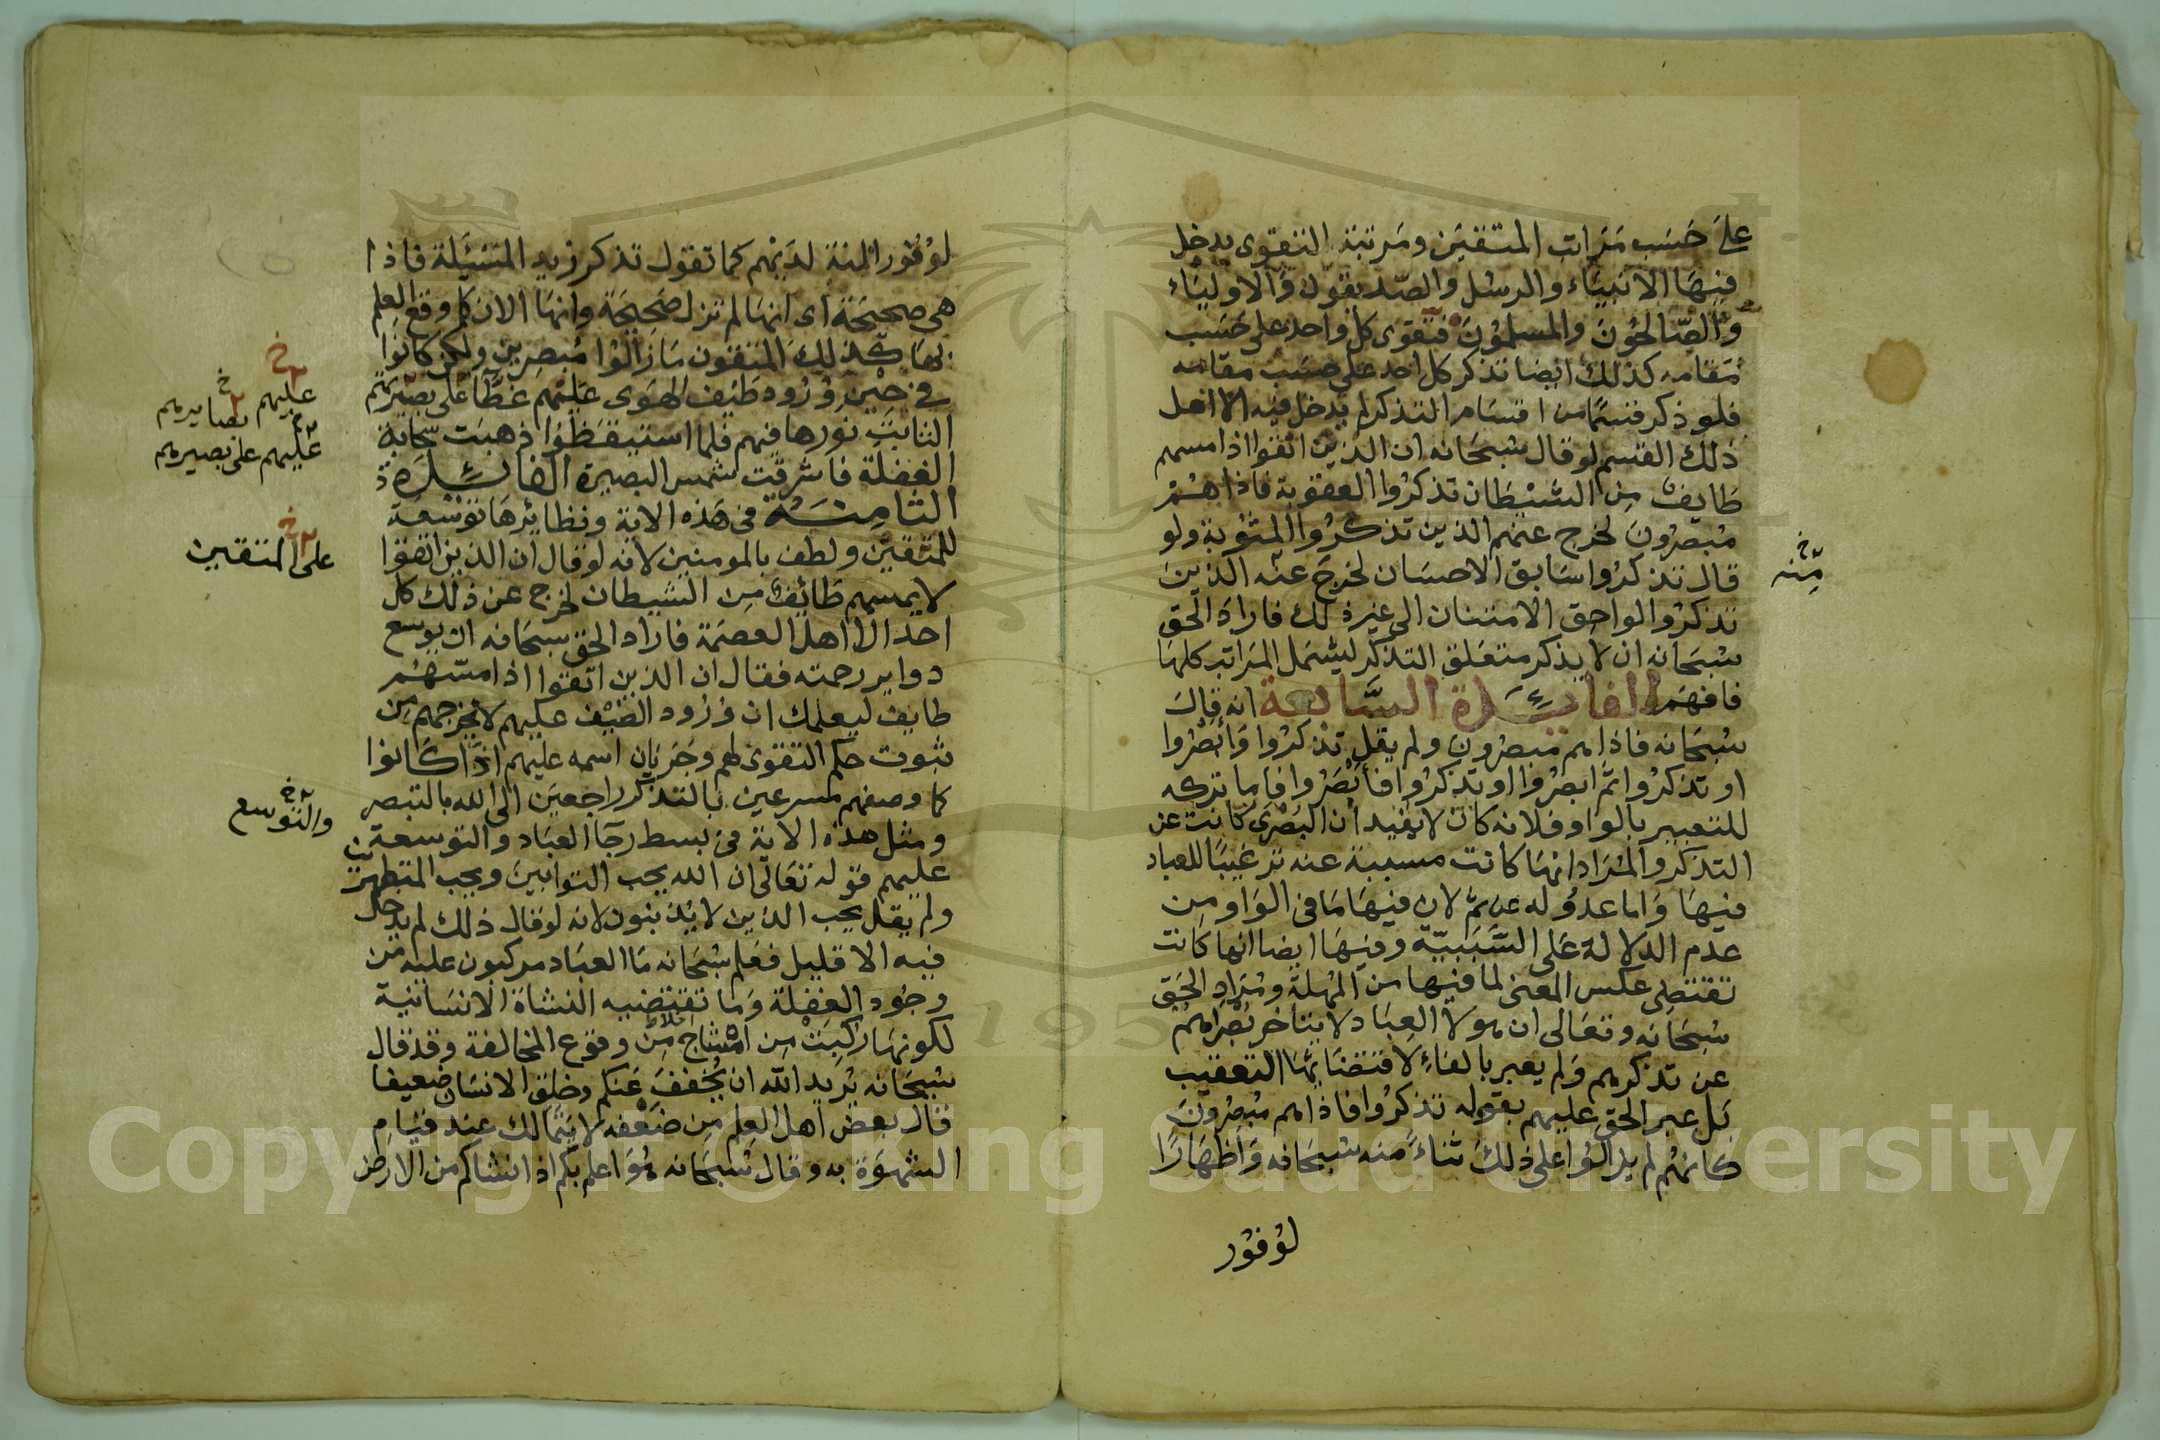 على حسب مراتب المتقين ومرتبة التقوى يدخل
فيها الانبياء والرسل والصديقون والاولياء
والصالحون والمسلمون فتقوى كل واحد على حسب
مقامه كذلك ايضا تذكر كل احد على حسب مقامه
فلو ذكر قسما من اقسام التذكر لم يدخل فيه الا اهل
ذلك القسم لو قال سبحانه ان الذين اتقوا اذا مسهم
طايف من الشيطان تذكروا العقوبة فاذا هم
مبصرون لخرج عنهم الذين تذكروا المثوبة ولو
قال تذكروا سابق الاحسان لخرج عنه الذين
منه خ
تذكروا لواحق الامتنان الى غير ذلك فاراد الحق
سبحانه ان لا يذكر متعلق التذكر ليشمل المراتب كلها
فافهم الفائدة السابعة انه قال
سبحانه فاذا هم مبصرون ولم يقل تذكروا وابصروا
او تذكروا ثم ابصروا او تذكروا فابصروا فاما تركه
للتعبير بالواو فلانه كان لا يفيد ان البصرى كانت عن
التذكر والمراد انها كانت مسببة عنه ترغيبا للعباد
فيها واما عدوله عن ثم لان فيها ما فى الواو من
عدم الدلالة على السببية وفيها ايضا انها كانت
تقتضى عكس المعنى لما فيها من المهلة ومراد الحق
سبحانه وتعالى ان هولا العباد لا يتاخر بصراهم
عن تذكرهم ولم يعبر بالفاء لاقتضايها التعقيب
بل عبر الحق عليهم بقوله تذكروا فاذا هم مبصرون
كانهم لم يزالوا على ذلك ثناء منه سبحانه واظهارا
لوفور
لوفور المنة لديهم كما تقول تذكر زيد المسئلة فاذا
هى صحيحة اى انها لم تزل صحيحة وانها الان كما وقع العلم
بها كذلك المتقون ما زالوا مبصرين ولكن كانوا
فى حين ورود طيف الهوى عليهم غطا على بصيرتهم
عليهم بصايرهم خ
الثابت نورها فيهم فلما استيقظوا ذهبت سحابة
عليهم على بصيرهم خ
الغفلة فاشرقت شمس البصيرة الفائدة
الثامنة فى هذه الاية ونظائرها توسعة
للمتقين ولطف بالمومنين لانه لو قال ان الذين اتقوا
على المتقين خ
لا يمسهم طائف من الشيطان لخرج عن ذلك كل
احد الا اهل العصمة فاراد الحق سبحانه ان يوسع
دواير رحمته فقال ان الذين اتقوا اذا مسهم
طايف ليعلمك ان ورود الطيف عليهم لا يخرجهم من
ثبوت حكم التقوى لهم وجريان اسمه عليهم اذا كانوا
كما وصفهم مسرعين بالتذكر راجعين الى الله بالتبصر
ومثل هذه الاية فى بسط رجا العباد والتوسعة
والتوسع خ
عليهم قوله تعالى ان الله يحب التوابين ويحب المتطهرين
ولم يقل يحب الذين لا يذنبون لانه لو قال ذلك لم يدخل
فيه الا قليل فعلم سبحانه ما العباد مركبون عليه من
وجود الغفلة وما تقتضيه النشاة الانسانية
لكونها ركبت من امشاج من وقوع المخالفة وقد قال
سبحانه يريد الله ان يخفف عنكم وخلق الانسان ضعيفا
قال بعض اهل العلم من ضعفه لا يتمالك عند قيام
الشهوة به وقال سبحانه هو اعلم بكم اذ انشاكم من الارض
Copyright © King Saud University
195